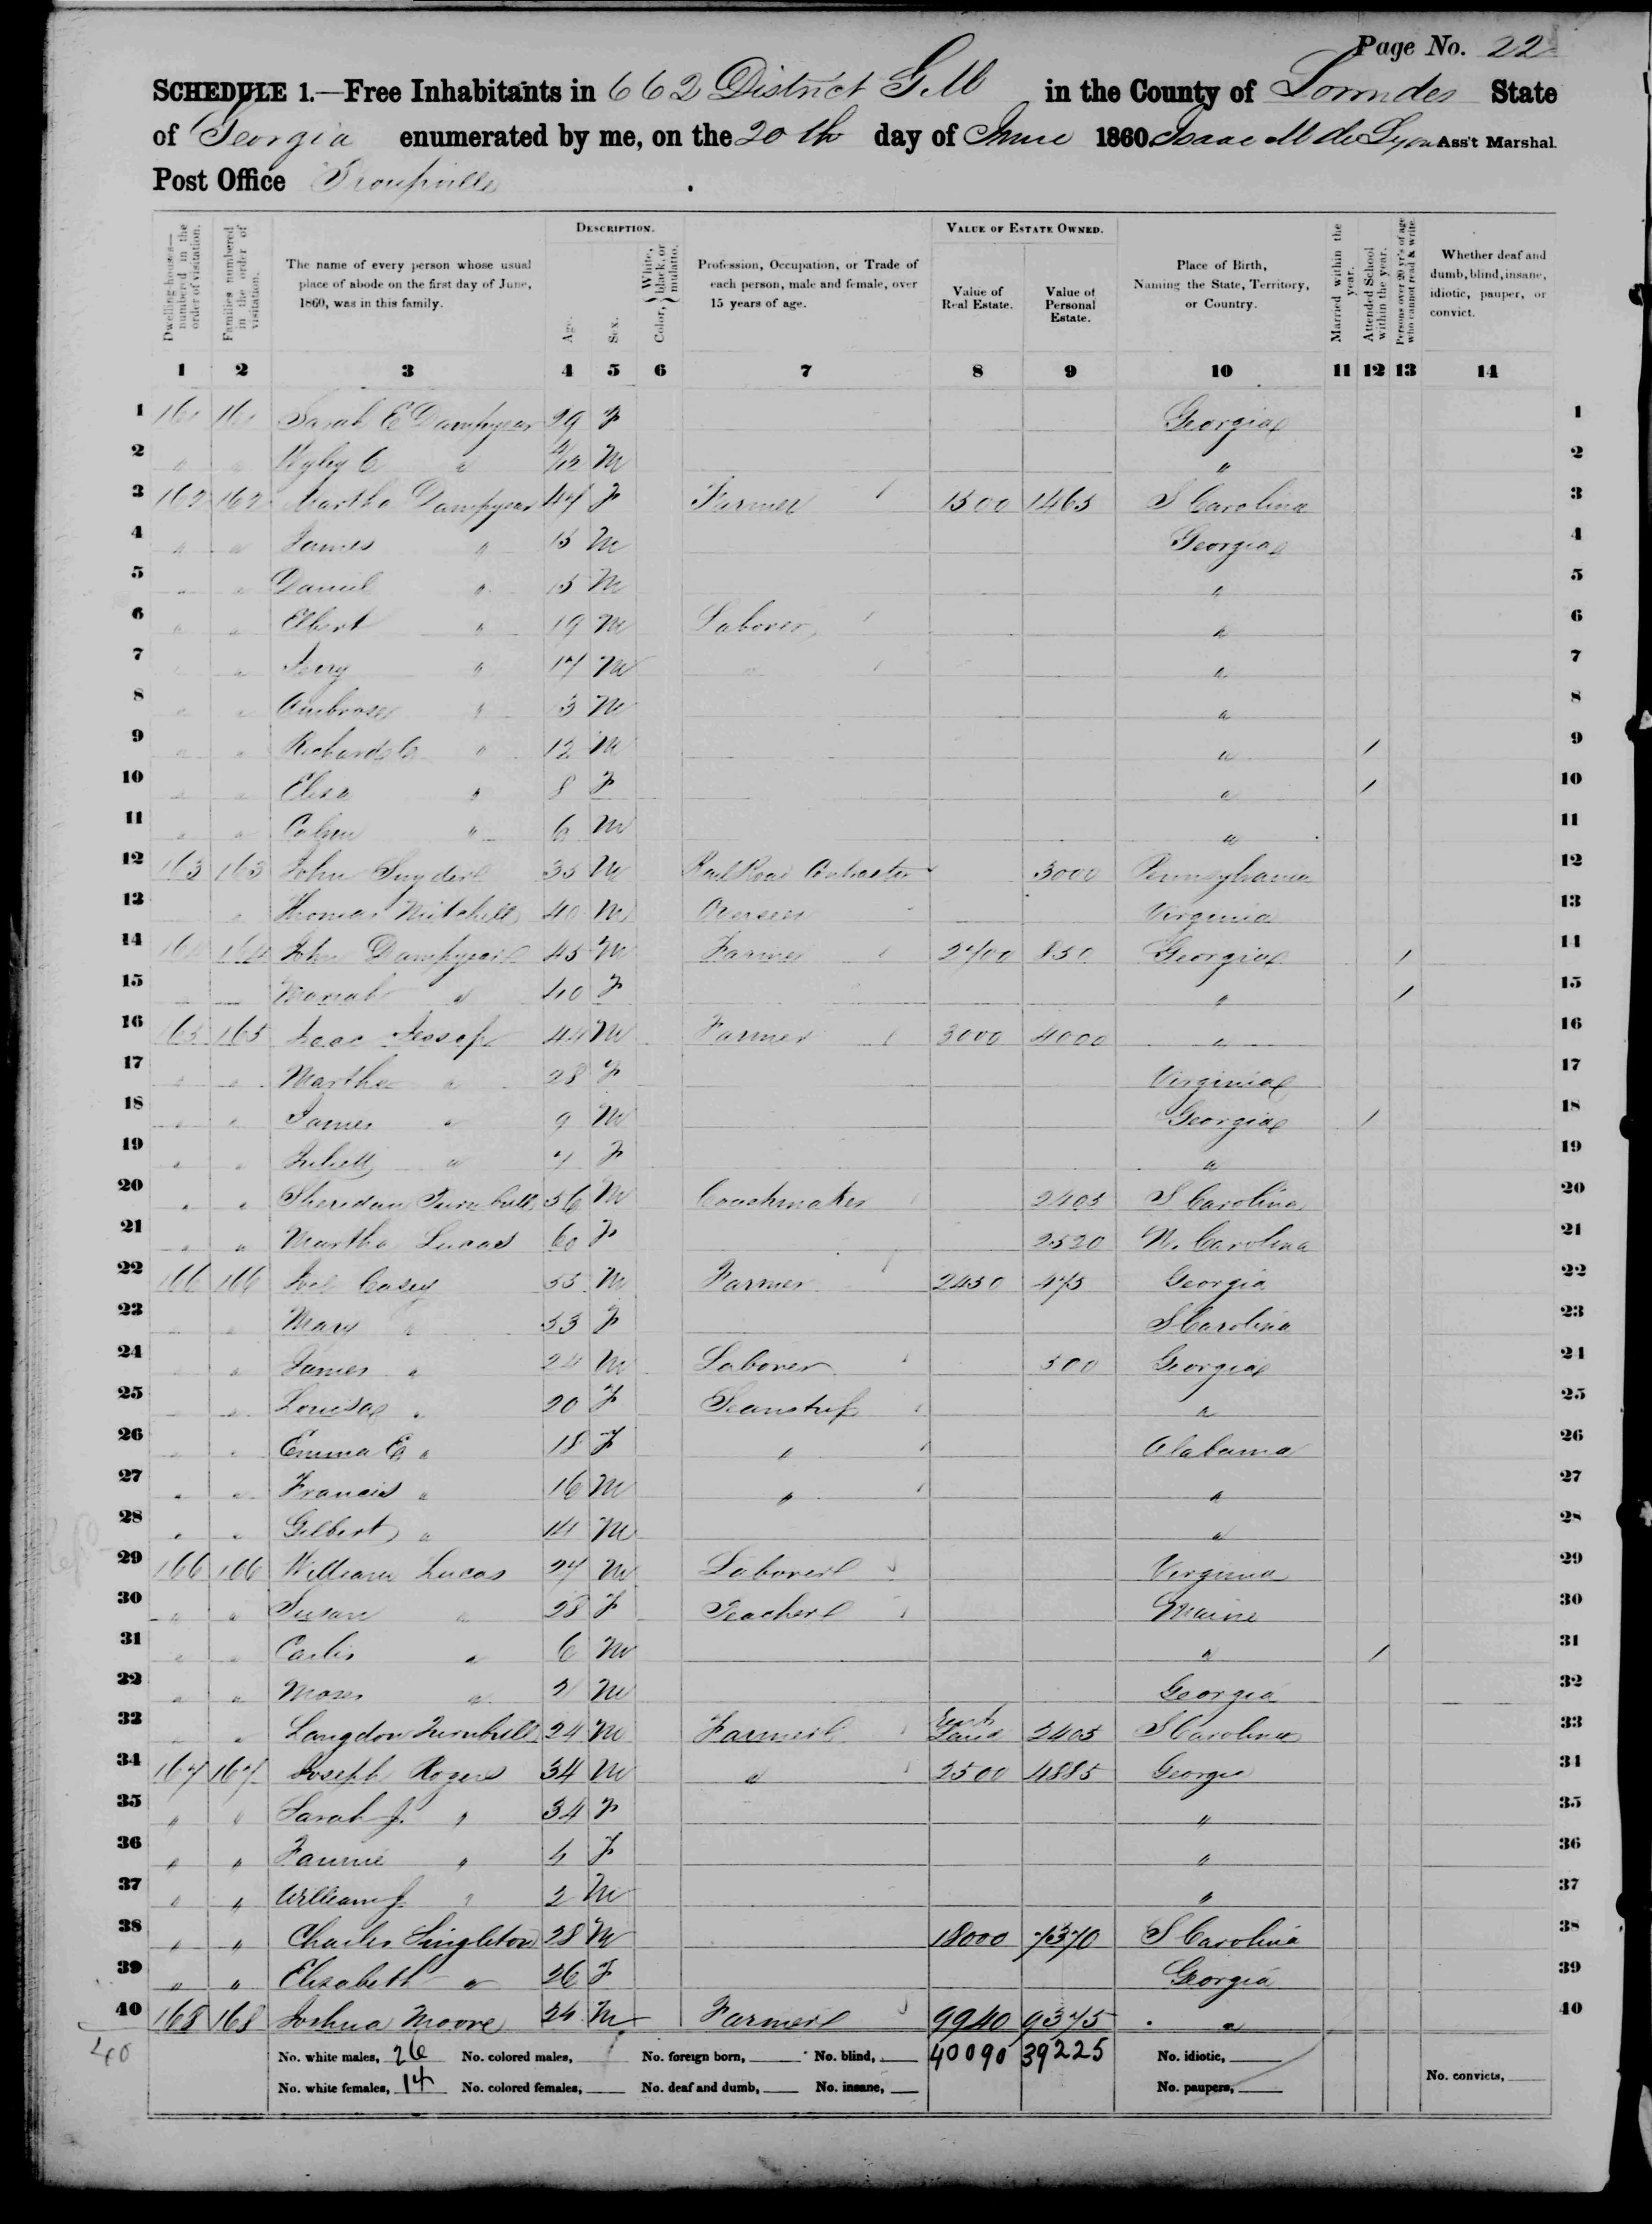 Page No. 22
SCHEDULE 1.—Free Inhabitants in 662 District G.M in the County of Lowndes State
of Georgia enumerated by me, on the 20th day of June 1860. Isaac M de Lyon Ass't Marshal.
Post Office Troupville
Dwelling-houses—numbered in the order of visitation.
Families numbered in the order of visitation.
The name of every person whose usual place of abode on the first day of June, 1860, was in this family.
DESCRIPTION.
Age.
Sex.
Color, { White, black, or mulatto.
Profession, Occupation, or Trade of each person, male and female, over 15 years of age.
VALUE OF ESTATE OWNED.
Value of Real Estate.
Value of Personal Estate.
Place of Birth, Naming the State, Territory, or Country.
Married within the year.
Attended School within the year.
Persons over 20 yr's of age who cannot read & write.
Whether deaf and dumb, blind, insane, idiotic, pauper, or convict.
1 2 3 4 5 6 7 8 9 10 11 12 13 14
1 161 161 Sarah E Dampyear 29 F Georgia 1
2 " " Wyley C " /12 M " 2
3 162 162 Martha Dampyear 47 F Farmer 1500 1465 S Carolina 3
4 " " James " 15 M Georgia 4
5 " " Daniel " 15 M " 5
6 " " Elbert " 19 M Laborer " 6
7 " " " 17 M " " 7
8 " " Ambrose " 3 M " 8
9 " " Richard C " 12 M " / 9
10 " " Eliza " 8 F " / 10
11 " " " 6 M " 11
12 163 163 John Snyder 35 M Rail Road Contractor 3000 Pennsylvania 12
13 " Thomas Mitchell 40 M Overseer Virginia 13
14 164 164 John Dampyear 45 M Farmer 2700 850 Georgia / 14
15 Mariah " 40 F " / 15
16 165 165 Isaac Jessop 44 M Farmer 3000 4000 " 16
17 " " Martha " 28 F Virginia 17
18 " " James " 9 M Georgia / 18
19 " " Juliett " 7 F " 19
20 " " Sheridan Turnbull 56 M Coachmaker 2405 S Carolina 20
21 " " Martha Lucas 60 F 2520 N. Carolina 21
22 166 166 Joel Casey 55 M Farmer 2450 475 Georgia 22
23 " " Mary " 53 F S Carolina 23
24 " " James " 24 M Laborer 500 Georgia 24
25 " " Louisa " 20 F Seamstress " 25
26 " " Emma E " 18 F " Alabama 26
27 " " Francis " 16 M " " 27
28 " " Gilbert " 14 M " 28
29 166 166 William Lucas 27 M Laborer Virginia 29
30 " " Susan " 28 F Teacher Maine 30
31 " " " 6 M " / 31
32 " " Moses " 2 M Georgia 32
33 " Langdon Turnbull 24 M Farmer Rents Land 2405 S Carolina 33
34 167 167 Joseph Rogers 34 M " 2500 4885 Georgia 34
35 " " Sarah J. " 34 F " 35
36 " " Fannie " 4 F " 36
37 " " William J. " 2 M " 37
38 " " Charles Singleton 28 M 18000 7370 S Carolina 38
39 " " Elizabeth " 26 F Georgia 39
40 168 168 Joshua Moore 24 M Farmer 9940 9375 " 40
40
No. white males, 26 No. colored males, No. foreign born, No. blind, 40090 39225 No. idiotic,
No. white females, 14 No. colored females, No. deaf and dumb, No. insane, No. paupers, No. convicts,